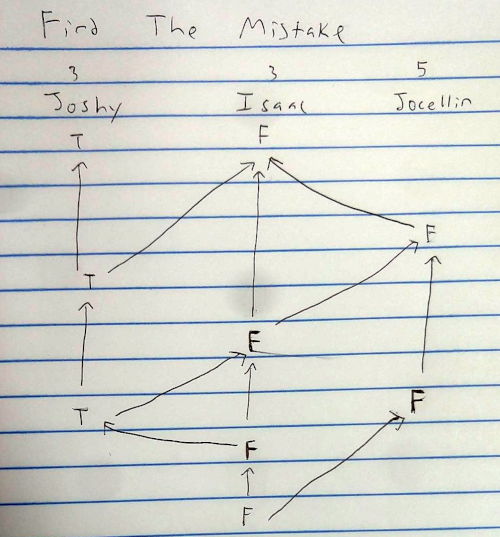 Find The Mistake
3 3 5
Joshy Isaac Jocellin
T F
F
T
F
F
T
F
F